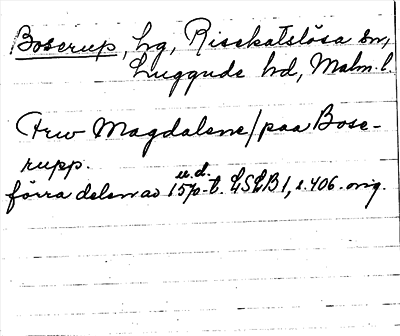 Boserup, hg, Risekatslösa sn,
Luggude hd, Malm. l.
Frw Magdalene/paa Bose-
rupp.
u.d.
förra delen av 15/0-t. LSLB 1, s. 406. orig.